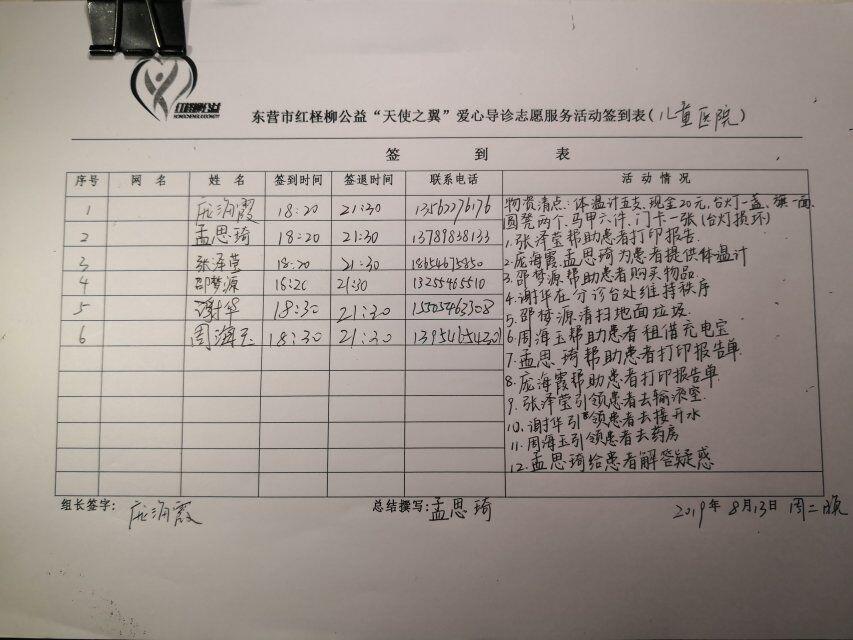 红柽柳公益
东营市红柽柳公益“天使之翼”爱心导诊志愿服务活动签到表(儿童医院)
签 到 表
序号 网 名 姓 名 签到时间 签退时间 联系电话 活 动 情 况
1 庞海霞 18:20 21:30 13562276176
2 孟思琦 18:20 21:30 13789838133
3 张泽莹 18:20 21:30 18654675850
4 邵梦源 18:20 21:30 13255465510
5 谢华 18:30 21:30 15505462308
6 周海玉 18:30 21:30 13954654220
物资清点:体温计五支、现金20元、台灯一盏、旗一面、
圆凳两个、马甲六件、门卡一张(台灯损坏)
1.张泽莹帮助患者打印报告.
2.庞海霞.孟思琦为患者提供体温计
3.邵梦源帮助患者购买物品
4.谢华在分诊台处维持秩序
5.邵梦源清扫地面垃圾
6.周海玉帮助患者租借充电宝
7.孟思琦帮助患者打印报告单
8.庞海霞帮助患者打印报告单
9.张泽莹引领患者去输液室
10.谢华引领患者去接开水
11.周海玉引领患者去药房
12.孟思琦给患者解答疑惑
组长签字: 庞海霞 总结撰写:孟思琦 2019年8月13日 周二晚